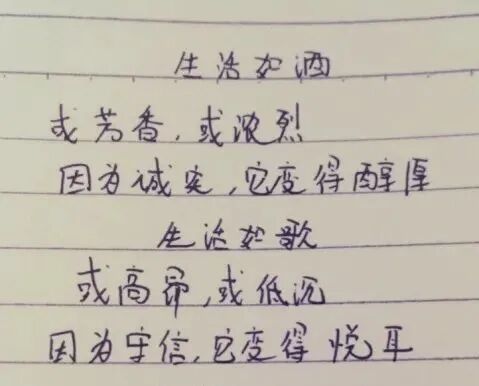 生活如酒
或芳香,或浓烈
因为诚实,它变得醇厚
生活如歌
或高昂,或低沉
因为守信,它变得悦耳